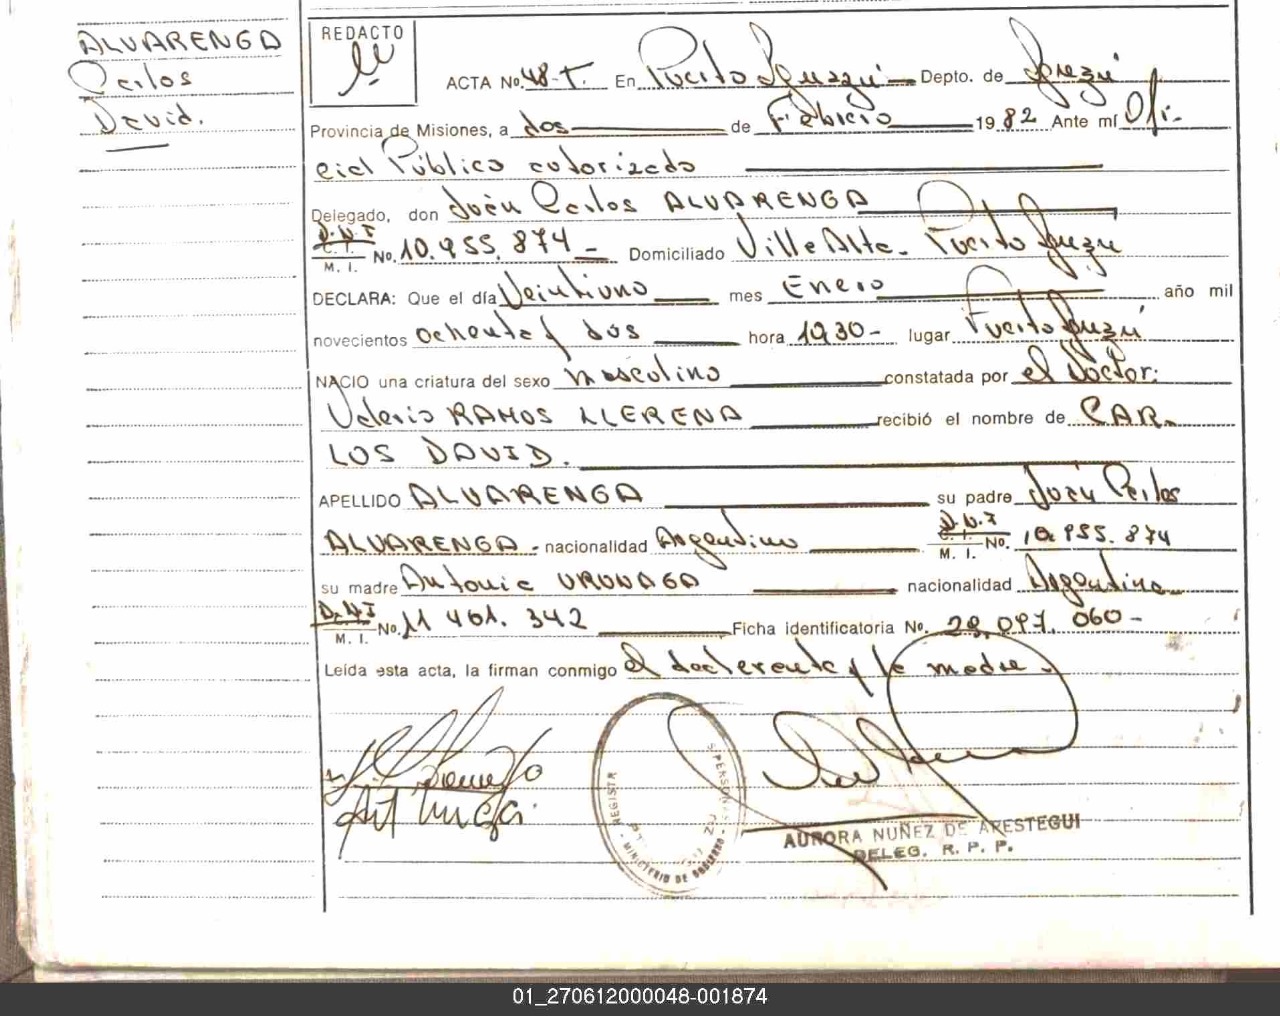 ALVARENGA
Carlos
David.
REDACTO
ACTA No. 48-T. En Puerto Iguazú Depto. de Iguazú
Provincia de Misiones, a dos de Febrero 1982 Ante mí Ofi-
cial Público autorizado
Delegado, don Juan Carlos ALVARENGA
D.N.I
C. I.
M. I. No. 10.955.874 Domiciliado Villa Alta. Puerto Iguazú
DECLARA: Que el día Veintiuno mes Enero año mil
novecientos ochenta y dos hora 19,30- lugar Puerto Iguazú
NACIO una criatura del sexo masculino constatada por el Doctor:
Valerio RAMOS LLERENA recibió el nombre de CAR-
LOS DAVID.
APELLIDO ALVARENGA su padre Juan Carlos
ALVARENGA - nacionalidad Argentino D.N.I C. I. M. I. No. 10.955.874
su madre Antonia nacionalidad Argentina
D.N.I
M. I. No. 11 401. 342 Ficha identificatoria No. 29.097.060-
Leída esta acta, la firman conmigo el declarante y la madre
MINISTERIO DE GOBIERNO
AURORA NUÑEZ DE ARESTEGUI
DELEG. R. P. P.
01_270612000048-001874